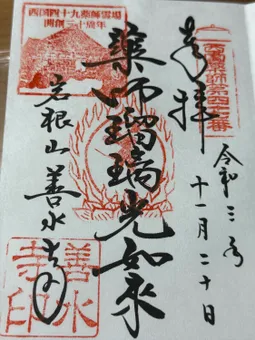 奉拝
西国薬師第四七番
令和三年
十一月二十日
薬師瑠璃光如来
西国四十九薬師霊場
開創三十周年
岩根山善水寺
善水寺印